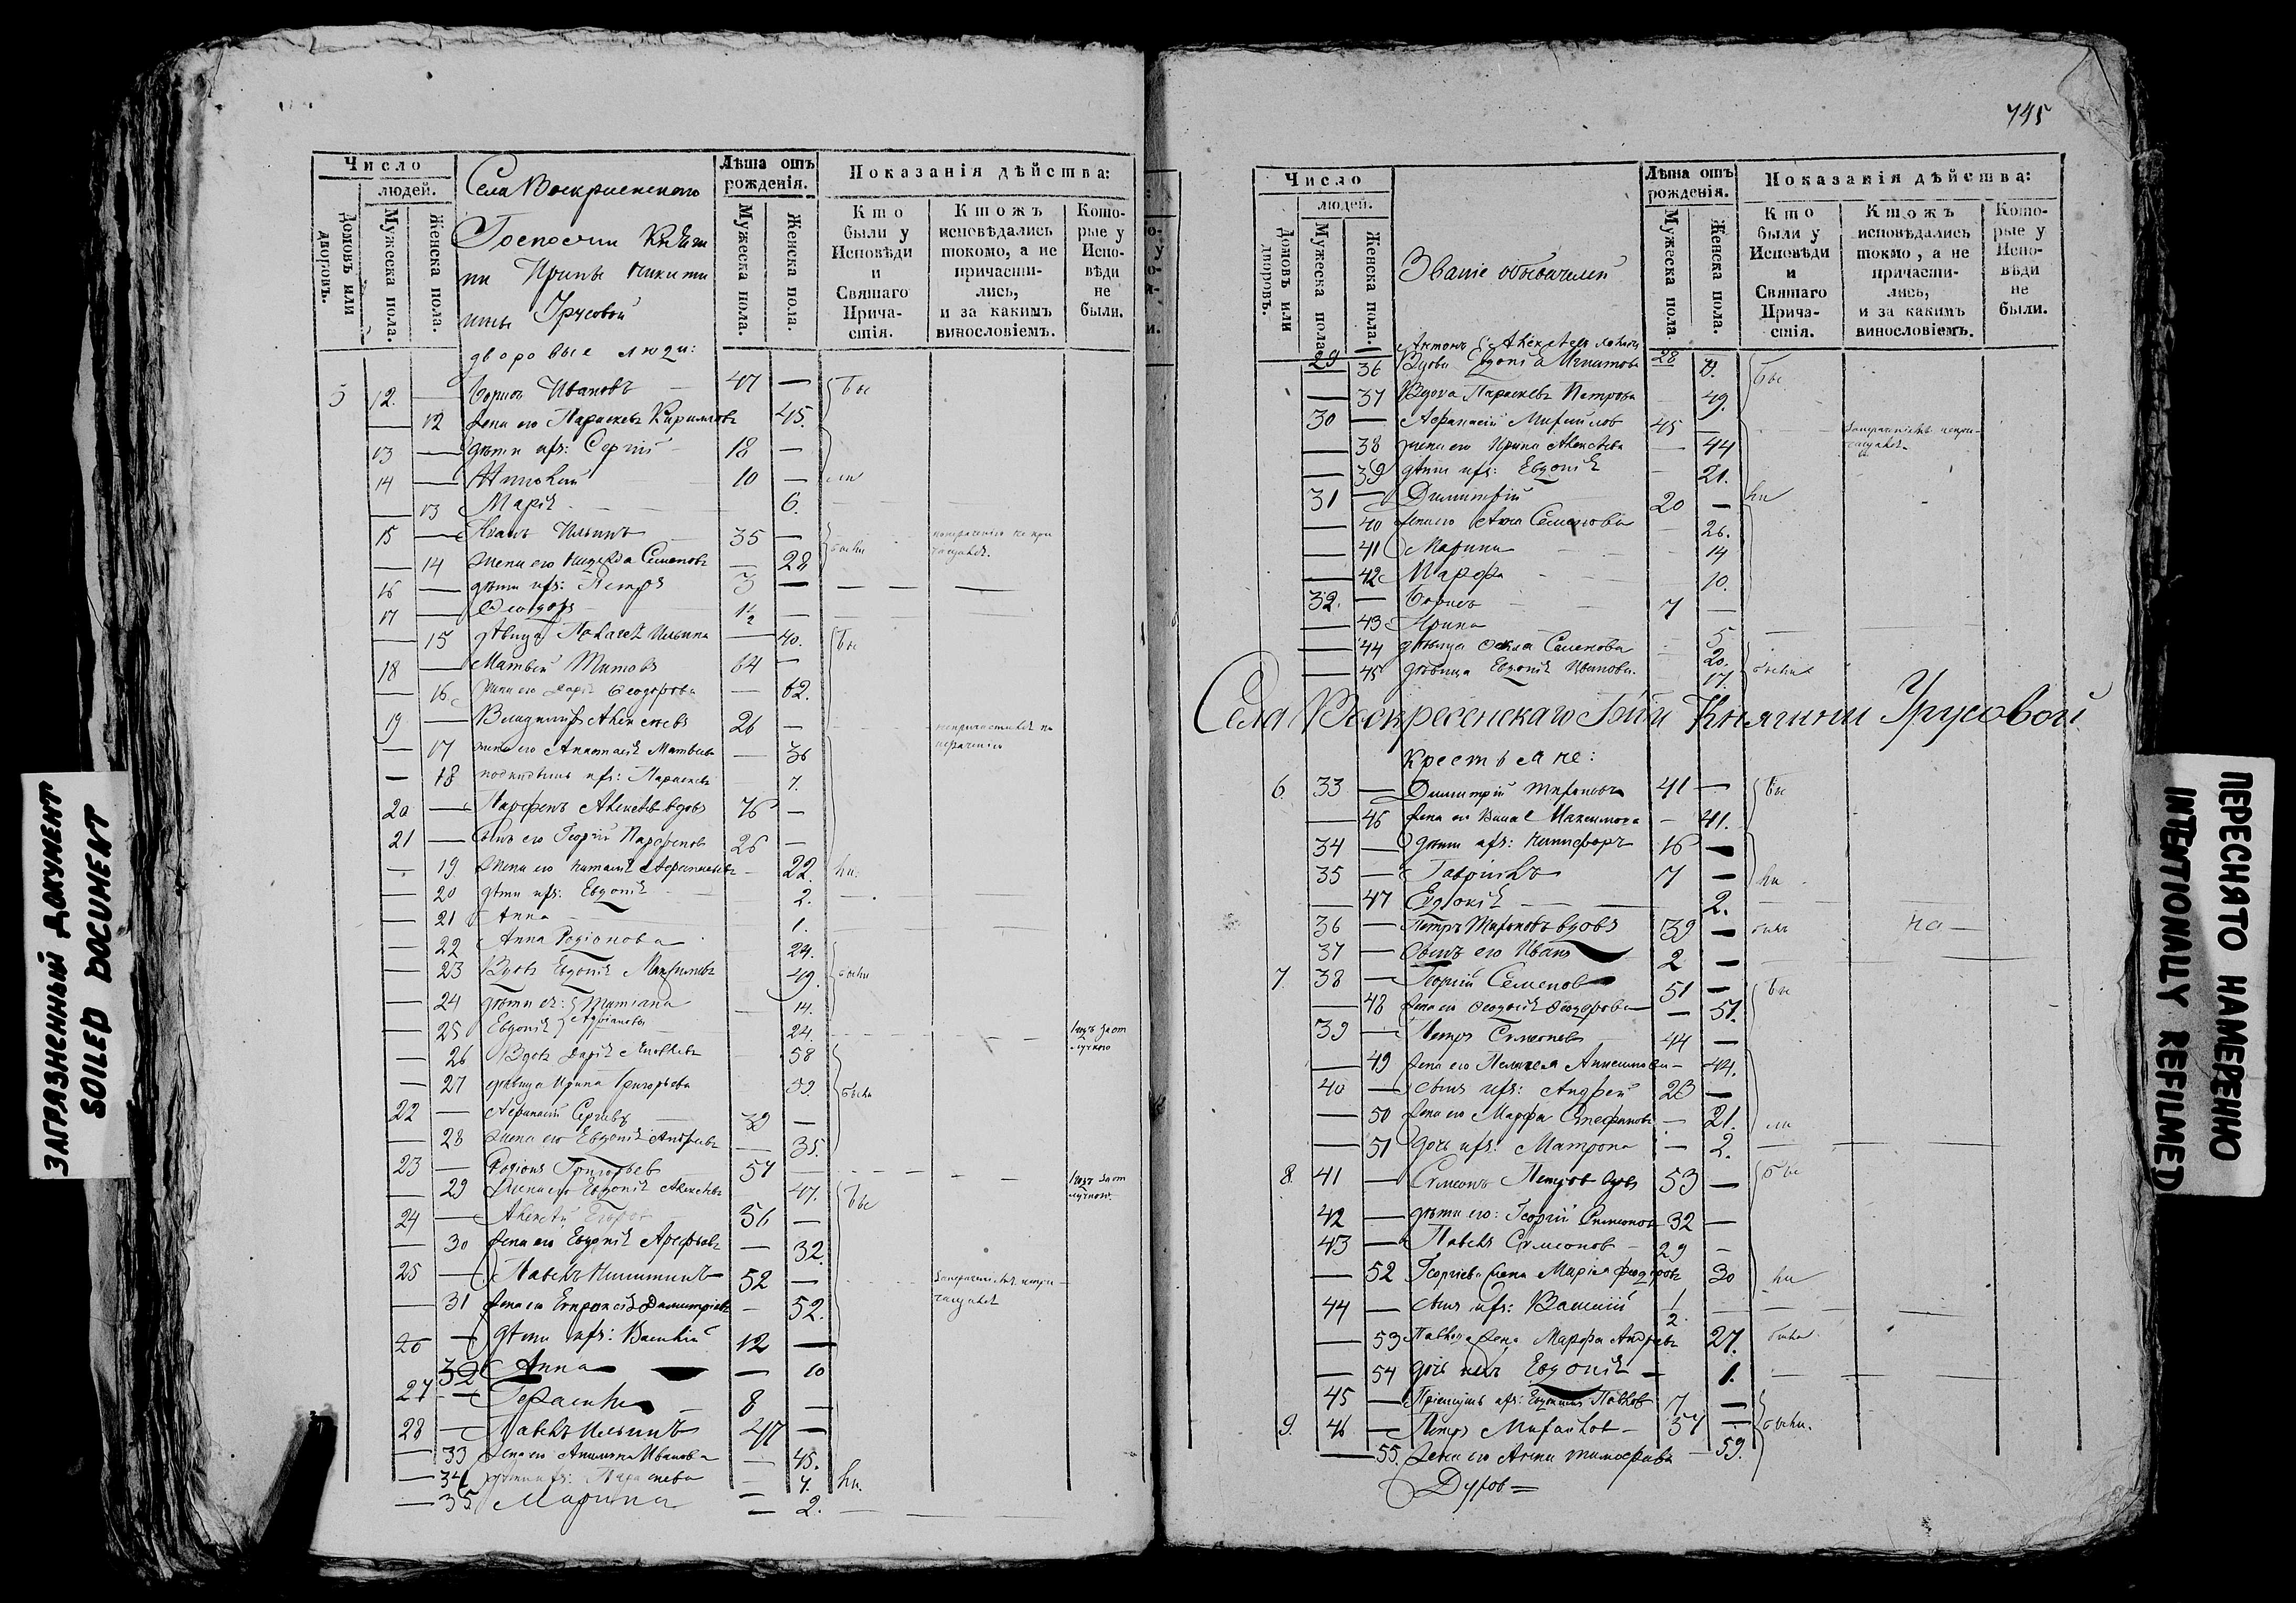 ЗАГРАЗНЕННЫЙ ДОКУМЕНТ
SOILED DOCUMENT
Число
людей.
Домовъ или дворовъ.
Мужеска пола.
Женска пола.
Села Воскресенского
Госпожи Княги
ни Ирины Никити
шны Урусовой
дворовые люди:
Лѣта отъ рожденія.
Мужеска пола.
Женска пола.
Показанія дѣйства:
Кто были у Исповѣди и Святаго Прича-стія.
Ктожъ исповѣдались токомо, а не причасти-лись, и за какимъ винословіемъ.
Кото-рые у Испо-вѣди не были.
5 12. — Борисъ Ивановъ 47 — бы
— 12 жена его Параскева Кирилова 45.
13 — дѣти ихъ: Сергій 18 —
14 — Николай 10 — ли
— 13 Марія 6.
15 — Иванъ Ильинъ 35 —
— 14 жена его Надежда Семенова — 28 были
16 — дѣти ихъ: Петръ 3 —
17 — Феодоръ 1/2 —
— 15 дѣвица Пелагея Ильина — 40. бы
18 — Матвей Титовъ 64 —
— 16 жена его Дарія Феодорова — 62.
19 — Владимиръ Алексеевъ 26 —
— 17 жена его Анастасія Матвеева — 36
— 18 ихъ: Параскева 7.
20 — Парфенъ Алексеевъ вдовъ 76 —
21 — сынъ его Георгій Парфеновъ 26 —
— 19 жена его Наталія — 22. ли
— 20 дѣти ихъ: Евдокія 2.
— 21 Анна 1.
— 22 Анна Родіонова 24.
— 23 Вдова Евдокія 49. были
— 24 дѣти ея: Татіана — 14.
— 25 Евдокія 24.
— 26 Вдова Дарія Яковлева 58
— 27 дѣвица Ирина Григорьева 59. были
22 — Афанасій Сергѣевъ 39 —
— 28 жена его Евдокія Андреева — 35.
23 — Родіонъ Григорьевъ 57 —
— 29 жена его Евдокія Алексеева 47. бы
24 — Алексѣй Егоровъ 36 —
— 30 жена его Евдокія Арефьева — 32.
25 — Павелъ Никитинъ 52 —
— 31 жена его Димитріева — 52.
26 — дѣти ихъ: Василій 12 —
32 Анна — 10
27 — Герасимъ 8 —
28 — Павелъ Ильинъ 47 —
— 33 жена его Акилина Иванова — 45.
— 34 дѣти ихъ: Параскева — 7. ли.
— 35 Марина — 2.
745
Число
людей.
Домовъ или дворовъ.
Мужеска пола.
Женска пола.
Званіе обывателей
Лѣта отъ рожденія.
Мужеска пола.
Женска пола.
Показанія дѣйства:
Кто были у Исповѣди и Святаго Прича-стія.
Ктожъ исповѣдались токмо, а не причасти-лись, и за какимъ винословіемъ.
Кото-рые у Испо-вѣди не были.
29 — Антонъ Алексѣевъ 28
36 Вдова Евдокія Игнатова бы
— 37 Вдова Параскева Петрова 49.
30 — Афанасій Михайловъ 45 —
— 38 жена его Ирина Алексѣева — 44
— 39 дѣти ихъ: Евдокія — 21.
31 — Димитрій 20 — ли
— 40 жена его Анна Семенова 26.
— 41 Марина 14
— 42 Марфа 10.
32. — Борисъ 7 —
— 43 Ирина 5
— 44 дѣвица Фекла Семенова 20.
— 45 дѣвица Евдокія Иванова 17. были
Села Воскресенскаго Гжи Княгини Урусовой
крестьяне:
6. 33 — Димитрій Тихоновъ 41 — бы
— 46 жена его Максимова — 41.
34 — дѣти ихъ: Никифоръ 16 —
35 — Гавріилъ 7 — ли
— 47 Евдокія 2.
36 — Петръ Тихоновъ вдовъ 39 —
37 — Сынъ его Иванъ 2 —
7 38 — Георгій Семеновъ 51 — бы
— 48 жена его Феодосія Феодорова — 51.
39 — Петръ Симеоновъ 44 —
— 49 жена его Пелагея Анисимова — 44.
40 — сынъ ихъ: Андрей 23 —
— 50 жена его Марфа Стефанова — 21. ли
— 51 дочь ихъ: Матрона — 2.
8. 41 — Симеонъ Петровъ вдовъ 53 — бы
42 — дѣти его: Георгій Симеоновъ 32 —
43 — Павелъ Симеоновъ 29 —
— 52 Георгіева жена Марія Феодорова 30 ли
44 — сынъ ихъ: Василій 1/2
— 53 Павлова жена Марфа Андреева 27. была
— 54 дочь ихъ Евдокія — 1.
45 — ихъ: Павловъ 7 —
9. 46 — Петръ Михайловъ 57 — были.
— 55. жена его Анна Тимофеева — 59.
Духов=
ПЕРЕСНЯТО НАМЕРЕННО
INTENTIONALLY REFILMED